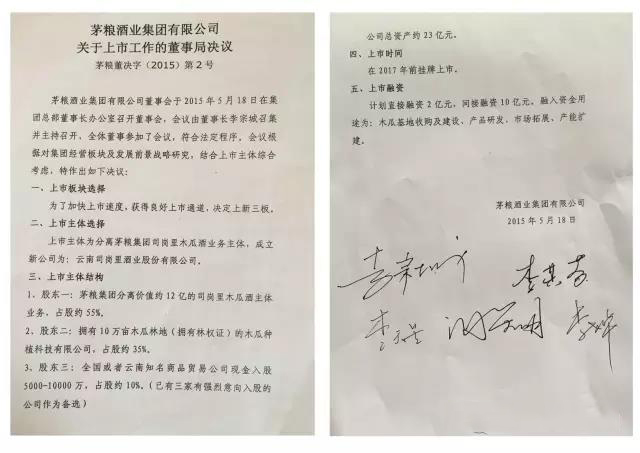 茅粮酒业集团有限公司
关于上市工作的董事局决议
茅粮董决字（2015）第 2 号
茅粮酒业集团有限公司董事会于 2015 年 5 月 18 日在集
团总部董事长办公室召开董事会，会议由董事长李宗城召集
并主持召开、全体董事参加了会议，符合法定程序。会议根
据对集团经营板块及发展前景战略研究，结合上市主体综合
考虑，特作出如下决议：
一、上市板块选择
为了加快上市速度，获得良好上市通道，决定上新三板。
二、上市主体选择
上市主体为分离茅粮集团司岗里木瓜酒业务主体，成立
新公司为：云南司岗里酒业股份有限公司。
三、上市主体结构
1、股东一：茅粮集团分离价值约 12 亿的司岗里木瓜酒主体
业务，占股约 55%。
2、股东二：拥有 10 万亩木瓜林地（拥有林权证）的木瓜种
植科技有限公司，占股约 35%。
3、股东三：全国或者云南知名商品贸易公司现金入股
5000-10000 万，占股约 10%。（已有三家有强烈意向入股的
公司作为备选）
公司总资产约 23 亿元。
四、上市时间
在 2017 年前挂牌上市。
五、上市融资
计划直接融资 2 亿元，间接融资 10 亿元。融入资金用
途为：木瓜基地收购及建设、产品研发、市场拓展、产能扩
建。
茅粮酒业集团有限公司
2015 年 5 月 18 日
李宗城